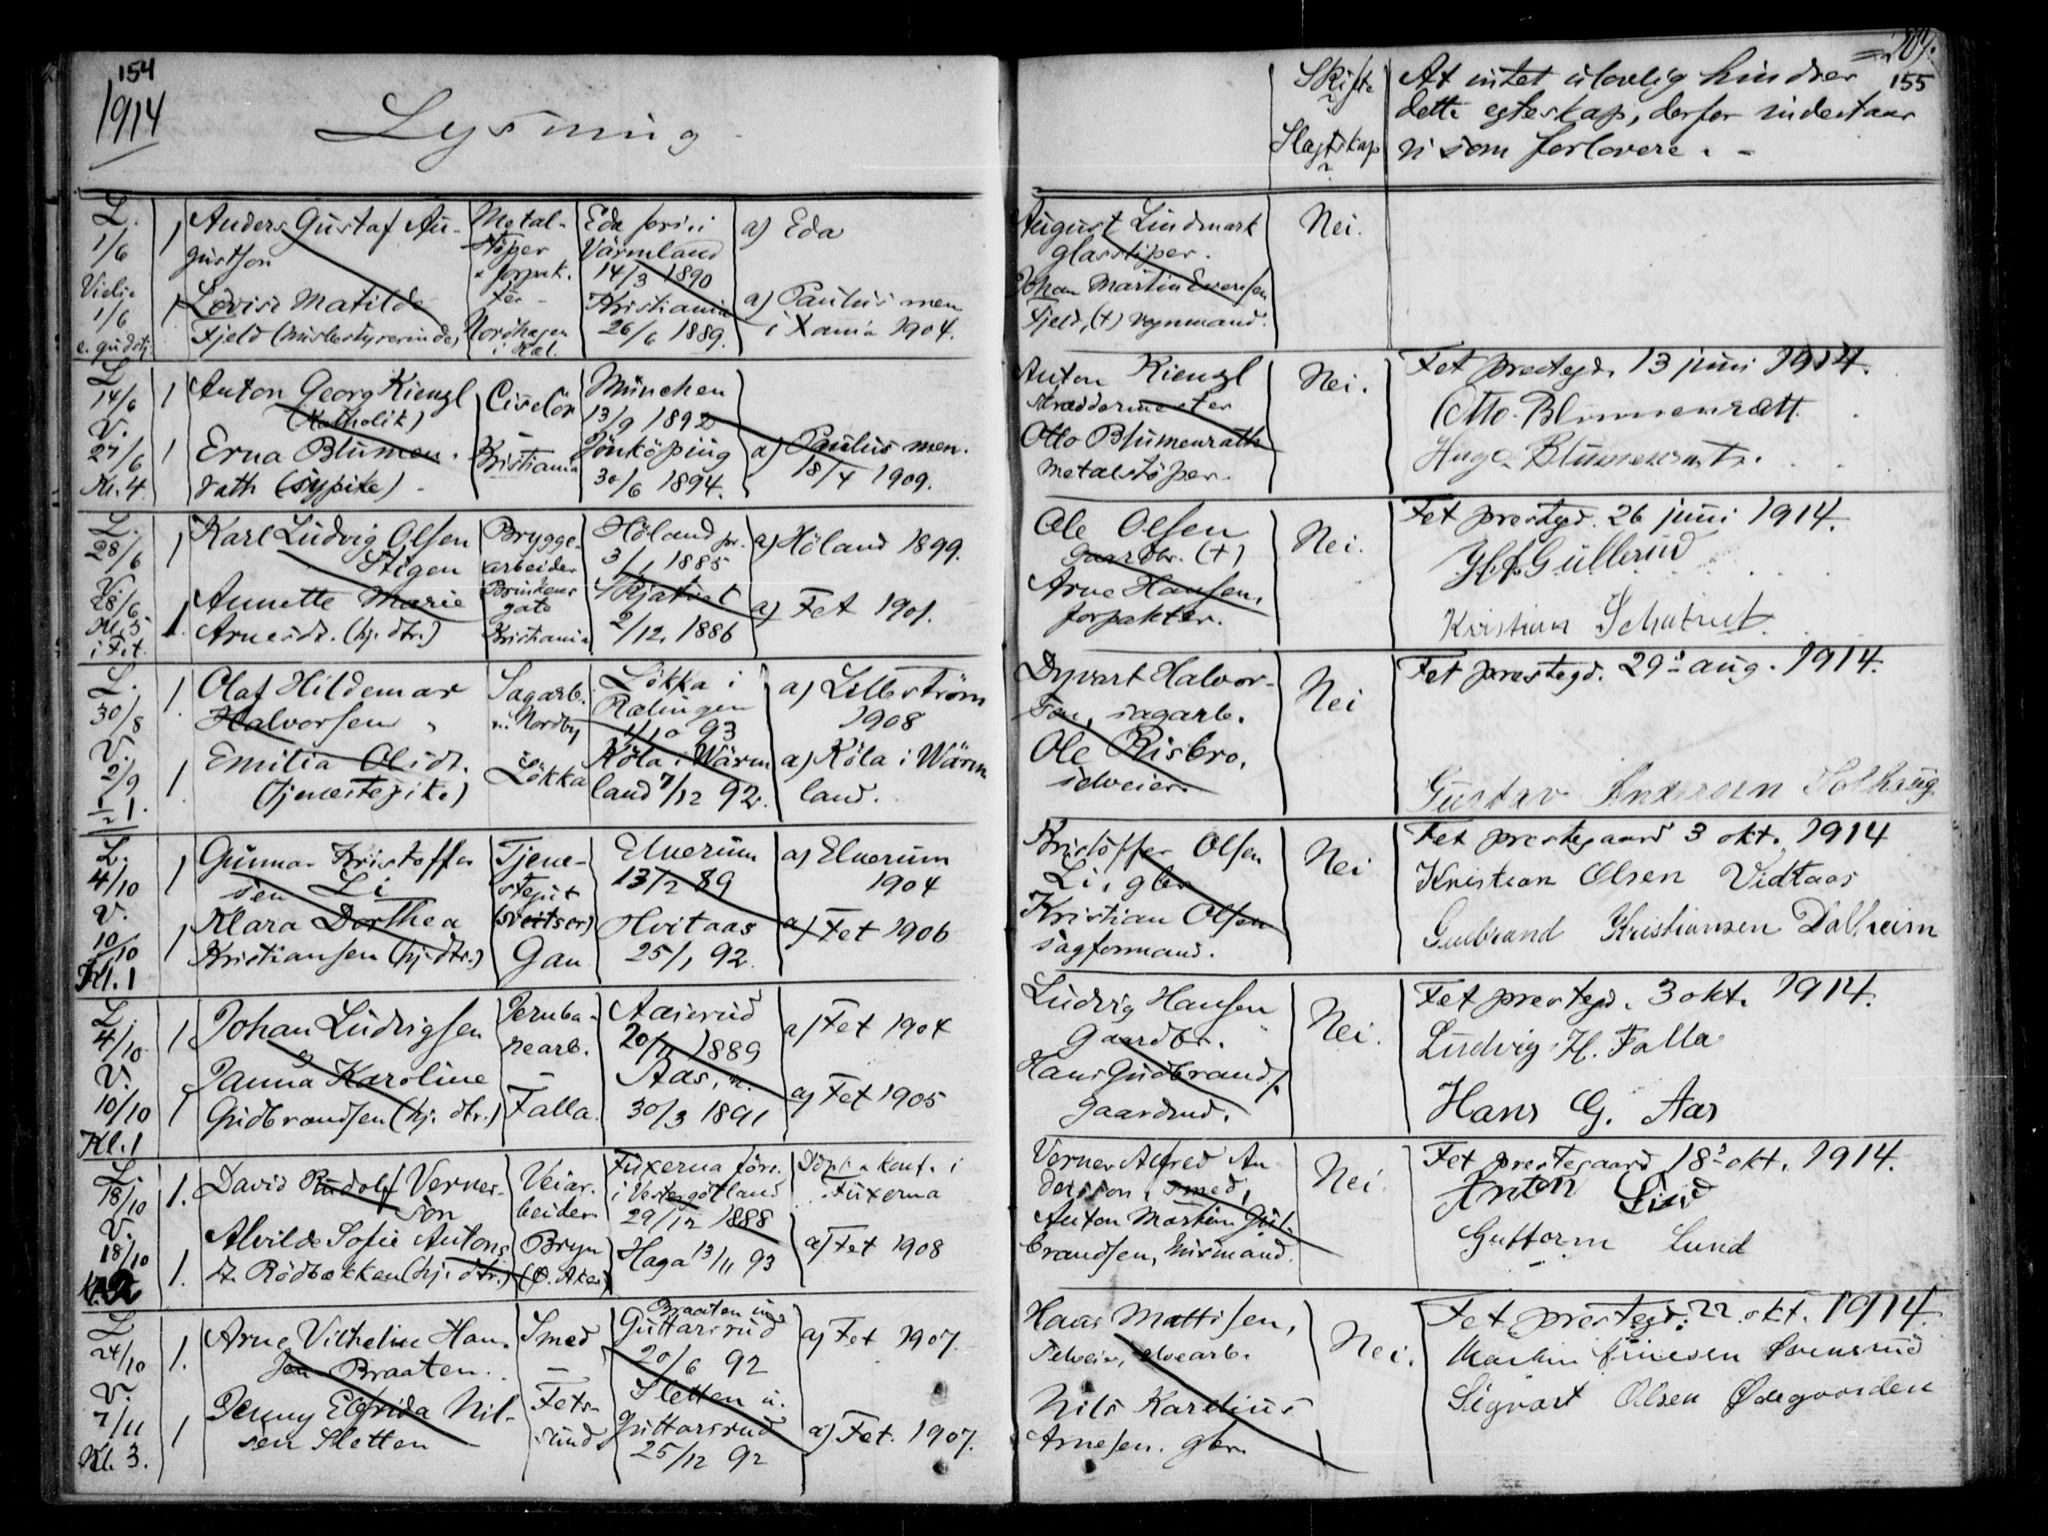 154
1914
Lysning
L. 1/6
Vielse 1/6
e. gudstj.
1 Anders Gustaf Au-
gustson
1 Lovise Matilde
Fjeld (husbestyrerinde)
Metal-
støper
& forpak-
ter -
Nordhagen
Eda fors. i
Värmland
14/3 1890
Kristiania
26/6 1889.
a) Eda
a) Paulus men
i Xania 1904.
L. 14/6
V. 27/6
Kl. 4
1 Anton Georg Kienzl
(Katholik)
1 Erna Blumen-
rath (sypike)
Ciselør
-
Kristiania
München
13/9 1892
Jönköping
30/6 1894.
a) Paulus men.
18/4 1909.
L. 28/6
V. 28/6
Kl. 5
i Fet.
1 Karl Ludvig Olsen
Stigen
1. Annette Marie
Arnesdr. (hj. dtr.)
Brygge-
arbeider
Brinkens
gate
Kristiania
Höland pr.
3/1 1885
Skjatvet
2/12. 1886
a) Höland 1899.
a) Fet 1901.
L. 30/8
V. 2/9
1/2 1.
1. Olaf Hildemar
Halvorsen
1. Emilia Olsdr.
(tjenestepike)
Sagarb.
Nordby
Løkka
Løkka i
Rælingen
93
Köla i Wärm
land 7/12 92.
a) Lillestrøm
1908
a) Köla i Wärm
land.
L. 4/10
V. 10/10
Kl. 1
1 Gunnar Kristoffer
sen Li
1 Klara Dorthea
Kristiansen (hj. dtr.)
Tjene-
stegut
(sveitser)
Gan
Elverum
13/2 89
Hvitaas
25/1 92.
a) Elverum
1904
a) Fet 1906
L. 4/10
V. 10/10
Kl. 1
1 Johan Ludvigsen
1 Janna Karoline
Gudbrandsen (hj. dtr.)
Jernba-
nearb.
-
Falla.
Aaserud
20/11 1889
Aas,
30/3 1891
a) Fet 1904
a) Fet 1905
L. 18/10
V. 18/10
Kl. 2
1. David Rudolf Verner-
son
1. Alvilde Sofie Antons
dr. Rödbakken (hj. dtr.)
Veiar-
beider
Bryn
(Ø. Aker)
Fuxerna förs.
i Vestergötland
29/12 1888
Haga 13/11 93
Döpt & konf. i
Fuxerna
a) Fet 1908
L. 24/10
V. 7/11
Kl. 3.
1. Arne Vilhelm Han-
sen Braaten.
1 Jenny Elfrida Nil-
sen Sletten
Smed
-
Fets-
sund
Braaten und
Guttarsrud
20/6 92
Sletten u.
Guttarsrud
25/12 92
a) Fet 1907.
a) Fet. 1907.
204.
155
Skifte
?
Slagtskap
?
At intet ulovlig hindrer
dette egteskap, derfor indestaar
vi som forlovere. -
August Lindmark
glasstøper.
Johan Martin Evensen
Fjeld, (+) vognmand.
Nei.
Anton Kienzl
skræddermester
Otto Blumenrath
metalstøper.
Nei.
Fet prestegd. 13 juni 1914.
Otto Blumenrath.
Hugo Blumenrath.
Ole Olsen
gaardbr. (+)
Arne Hansen,
forpakter.
Nei.
Fet prestegd. 26 juni 1914.
Gullerud
Kristian Schatvet
Dyvart Halvor-
sen, sagarb.
Ole Risbro,
selveier.
Nei
Fet prestegd. 29s aug. 1914.
Gustav Anderson Solhaug
Kristoffer Olsen
Li, gbr.
Kristian Olsen
sagformand.
Nei
Fet prestegaard 3 okt. 1914
Kristian Olsen Vidtaas
Gudbrand Kristiansen Dalheim
Ludvig Hansen
Gaardbr.
Hans Gudbrands.
gaardmd.
Nei.
Fet prestegd. 3 okt. 1914.
Ludvig H. Falla
Hans G. Aas
Verner Alfred An-
dersson, smed,
Anton Martin Gul-
brandsen, murmand.
Nei
Fet prestegaard 18s okt. 1914.
Anton Lund
Guttorm Lund
Hans Mattisen,
selveier, elvearb.
Nils Karelius
Arnesen. gbr.
Nei.
Fet prestegd. 22 okt. 1914
Martin
Sigvart Olsen Ødegaarden